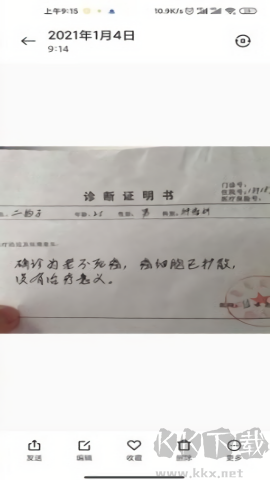 上午9:15
10.9K/s
2021年1月4日
9:14
诊断证明书
门诊号:
住院号:
医疗保险号:
二狗子
年龄
性别
男
科别
确诊为老不死癌,癌细胞已扩散,
没有治疗意义。
发送
编辑
收藏
删除
更多
KK下载
www.kkx.net